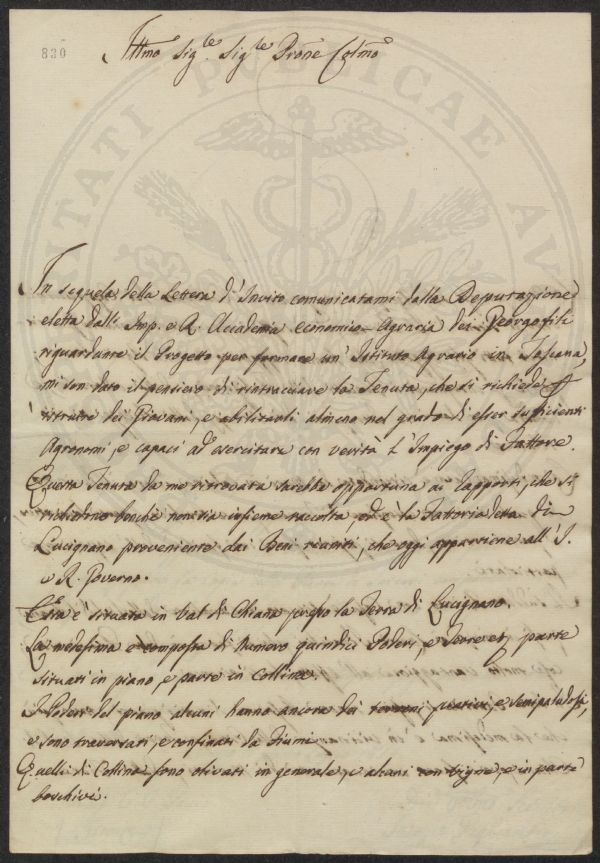 830
Illmo Sig.re Sig.re Prōne Colmo
In sequela della Lettera d'Invito comunicatami dalla Deputazione
eletta dall' Imp. e R. Accademia economico-Agraria dei Georgofili
riguardante il Progetto per formare un' Istituto Agrario in Toscana,
mi son dato il pensiero di rintracciare la Tenuta, che si richiede
istruire dei Giovani, e abilitarli almeno nel grado di esser sufficienti
Agronomi, e capaci ad esercitare con verità l'Impiego di Fattore.
Questa Tenuta da me ritrovata sarebbe opportuna ai rapporti, che si
richiedono benchè non sia insieme raccolta ed è la Fattoria detta di
Lucignano proveniente dai Beni riuniti, che oggi appartiene all' I.
e R. Governo.
Essa è situata in Val di Chiana presso la Terra di Lucignano.
La medesima è composta di Numero quindici Poderi, e Terre parte
situati in piano, e parte in Collina.
I Poderi del piano alcuni hanno ancora dei terreni prativi, e semipaludosi,
e sono traversati, e confinati da Fiumi.
Quelli di Collina sono olivati in generale, e alcuni con vigne, e in parte
boschivi.
PUBLICAE